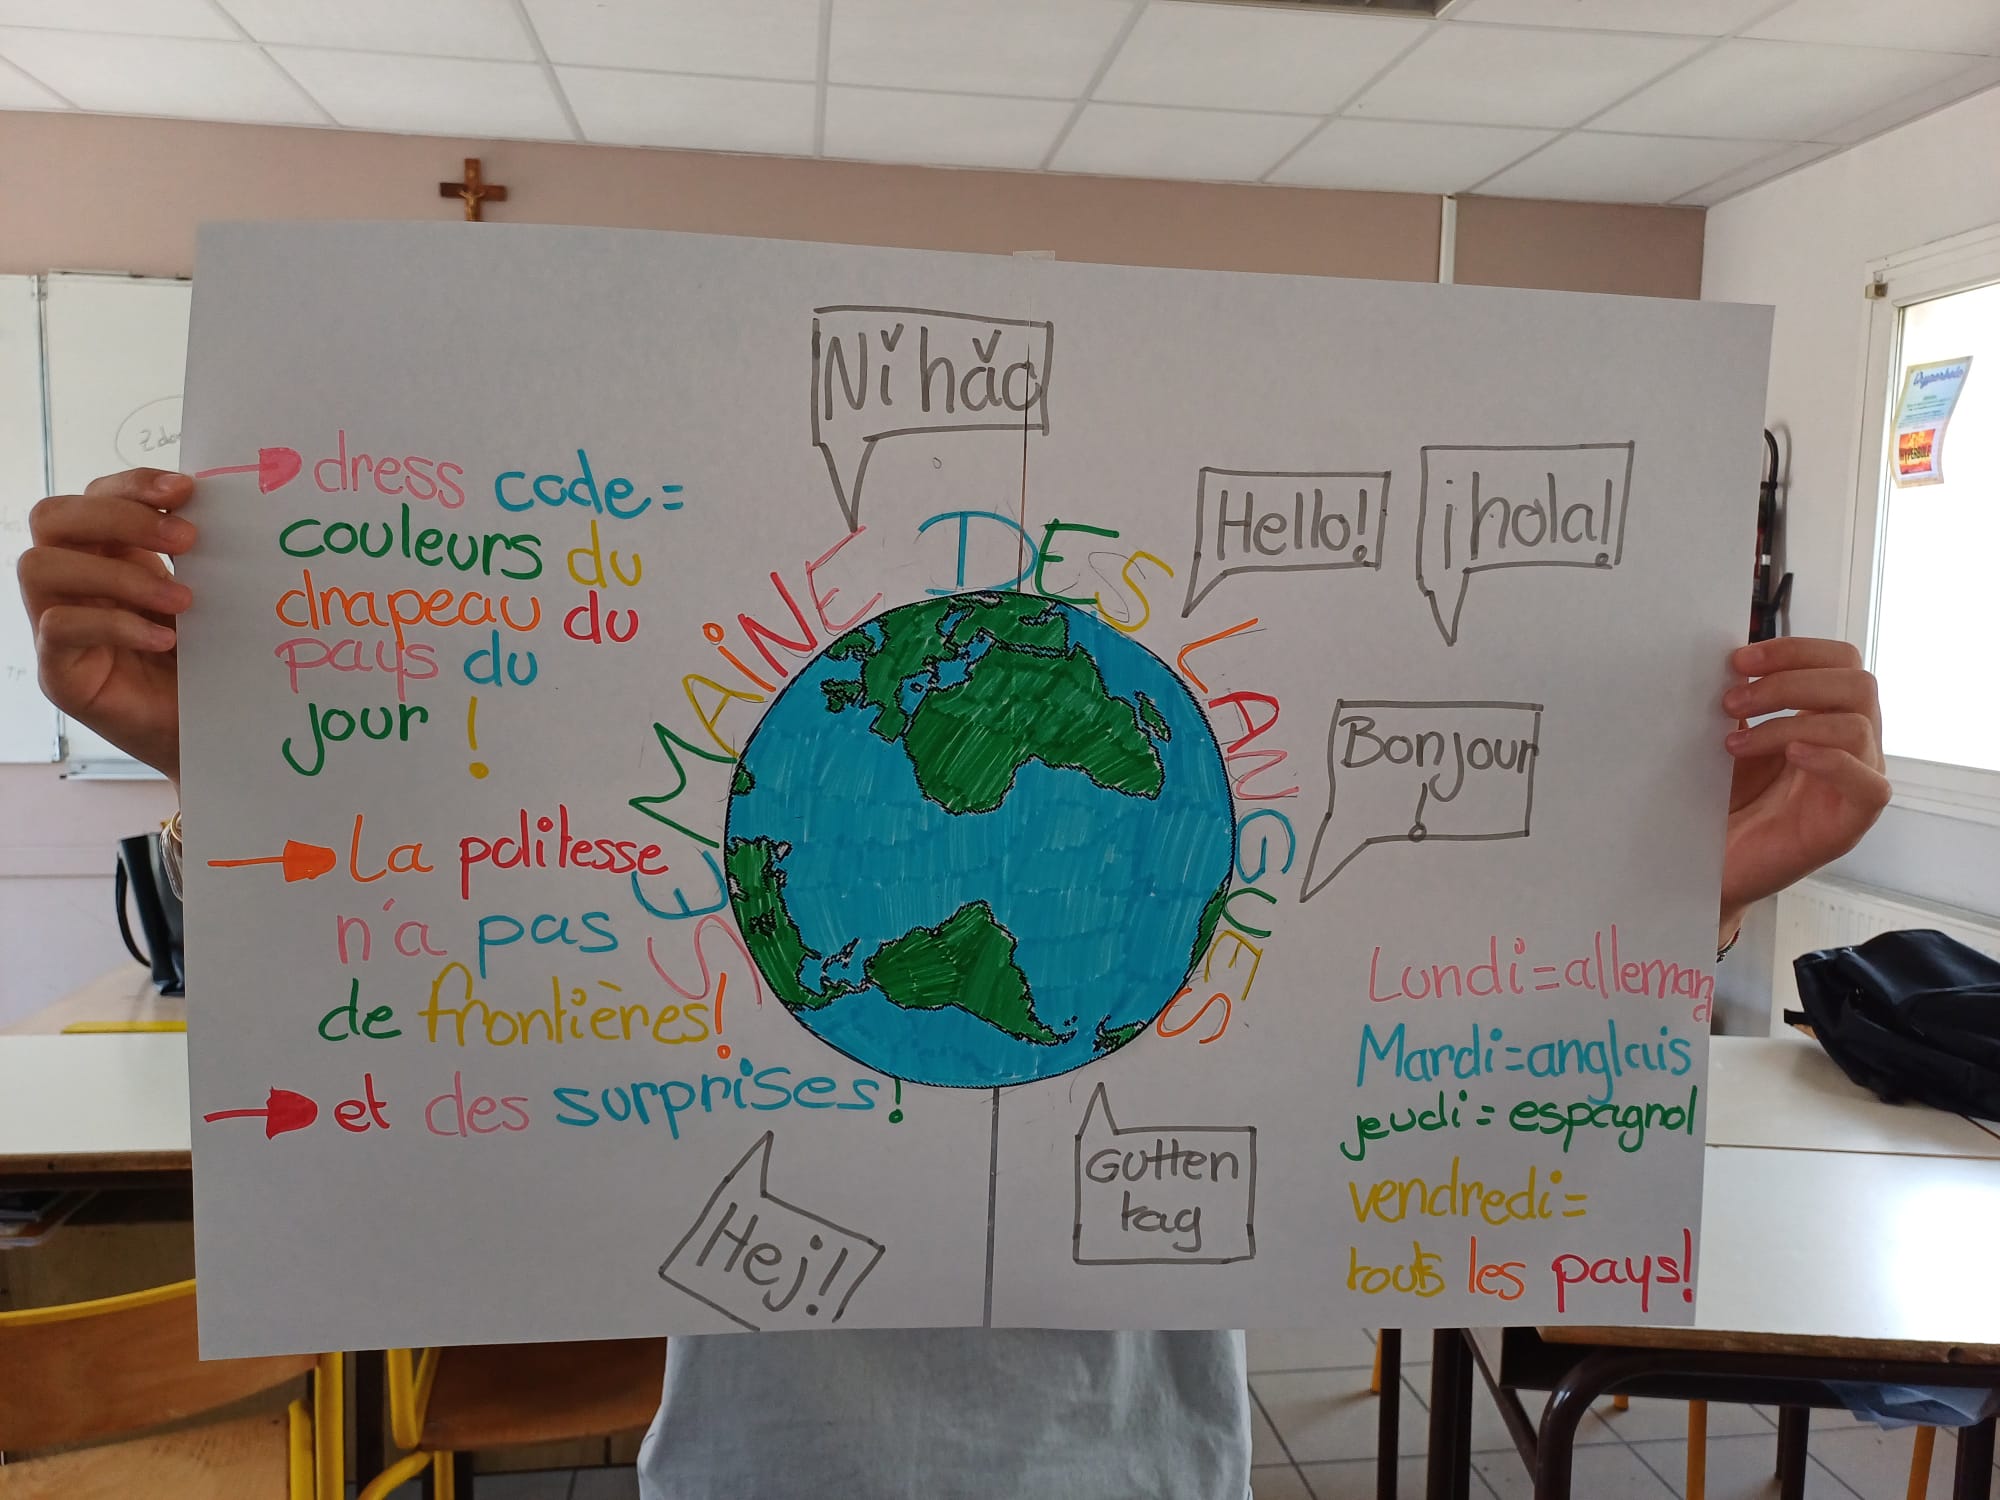 Nǐ hǎo
Hello!
¡hola!
Bonjour
!
SEMAINE DES LANGUES
dress code =
couleurs du
drapeau du
pays du
jour !
La politesse
n'a pas
de frontières!
et des surprises!
Hej!
Gutten
tag
Lundi = allemand
Mardi = anglais
jeudi = espagnol
vendredi =
touts les pays!
HYPERBOLE